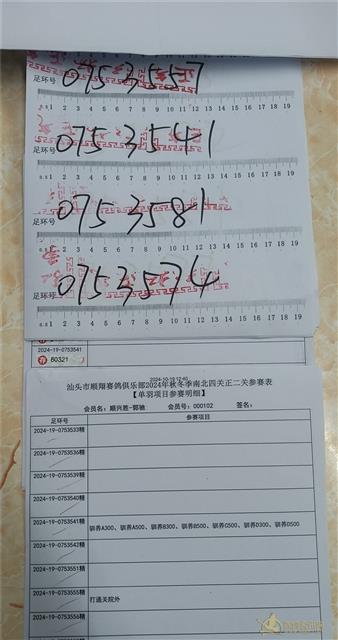 足环号 0753557
s.s1 2 3 4 5 6 7 8 9 10 11 12 13 14 15 16 17 18 19
足环号 0753541
s.s1 2 3 4 5 6 7 8 9 10 11 12 13 14 15 16 17 18 19
足环号 0753581
s.s1 2 3 4 5 6 7 8 9 10 11 12 13 14 15 16 17 18 19
足环号 0753574
s.s1 2 3 4 5 6 7 8 9 10 11 12 13 14 15 16 17 18 19
2024-19-0753541
存 80321
2024-10-19 12:40
汕头市顺翔赛鸽俱乐部2024年秋冬季南北四关正二关参赛表
【单羽项目参赛明细】
会员名：顺兴胜-郭驰 会员号：000102 签名：
足环号 参赛项目
2024-19-0753533精
2024-19-0753536精
2024-19-0753539精
2024-19-0753540精
2024-19-0753541精 驯养A300、驯养A500、驯养B300、驯养B500、驯养C500、驯养D300、驯养D500
2024-19-0753542精
2024-19-0753551精
2024-19-0753555精 打通关院外
2024-19-0753556精